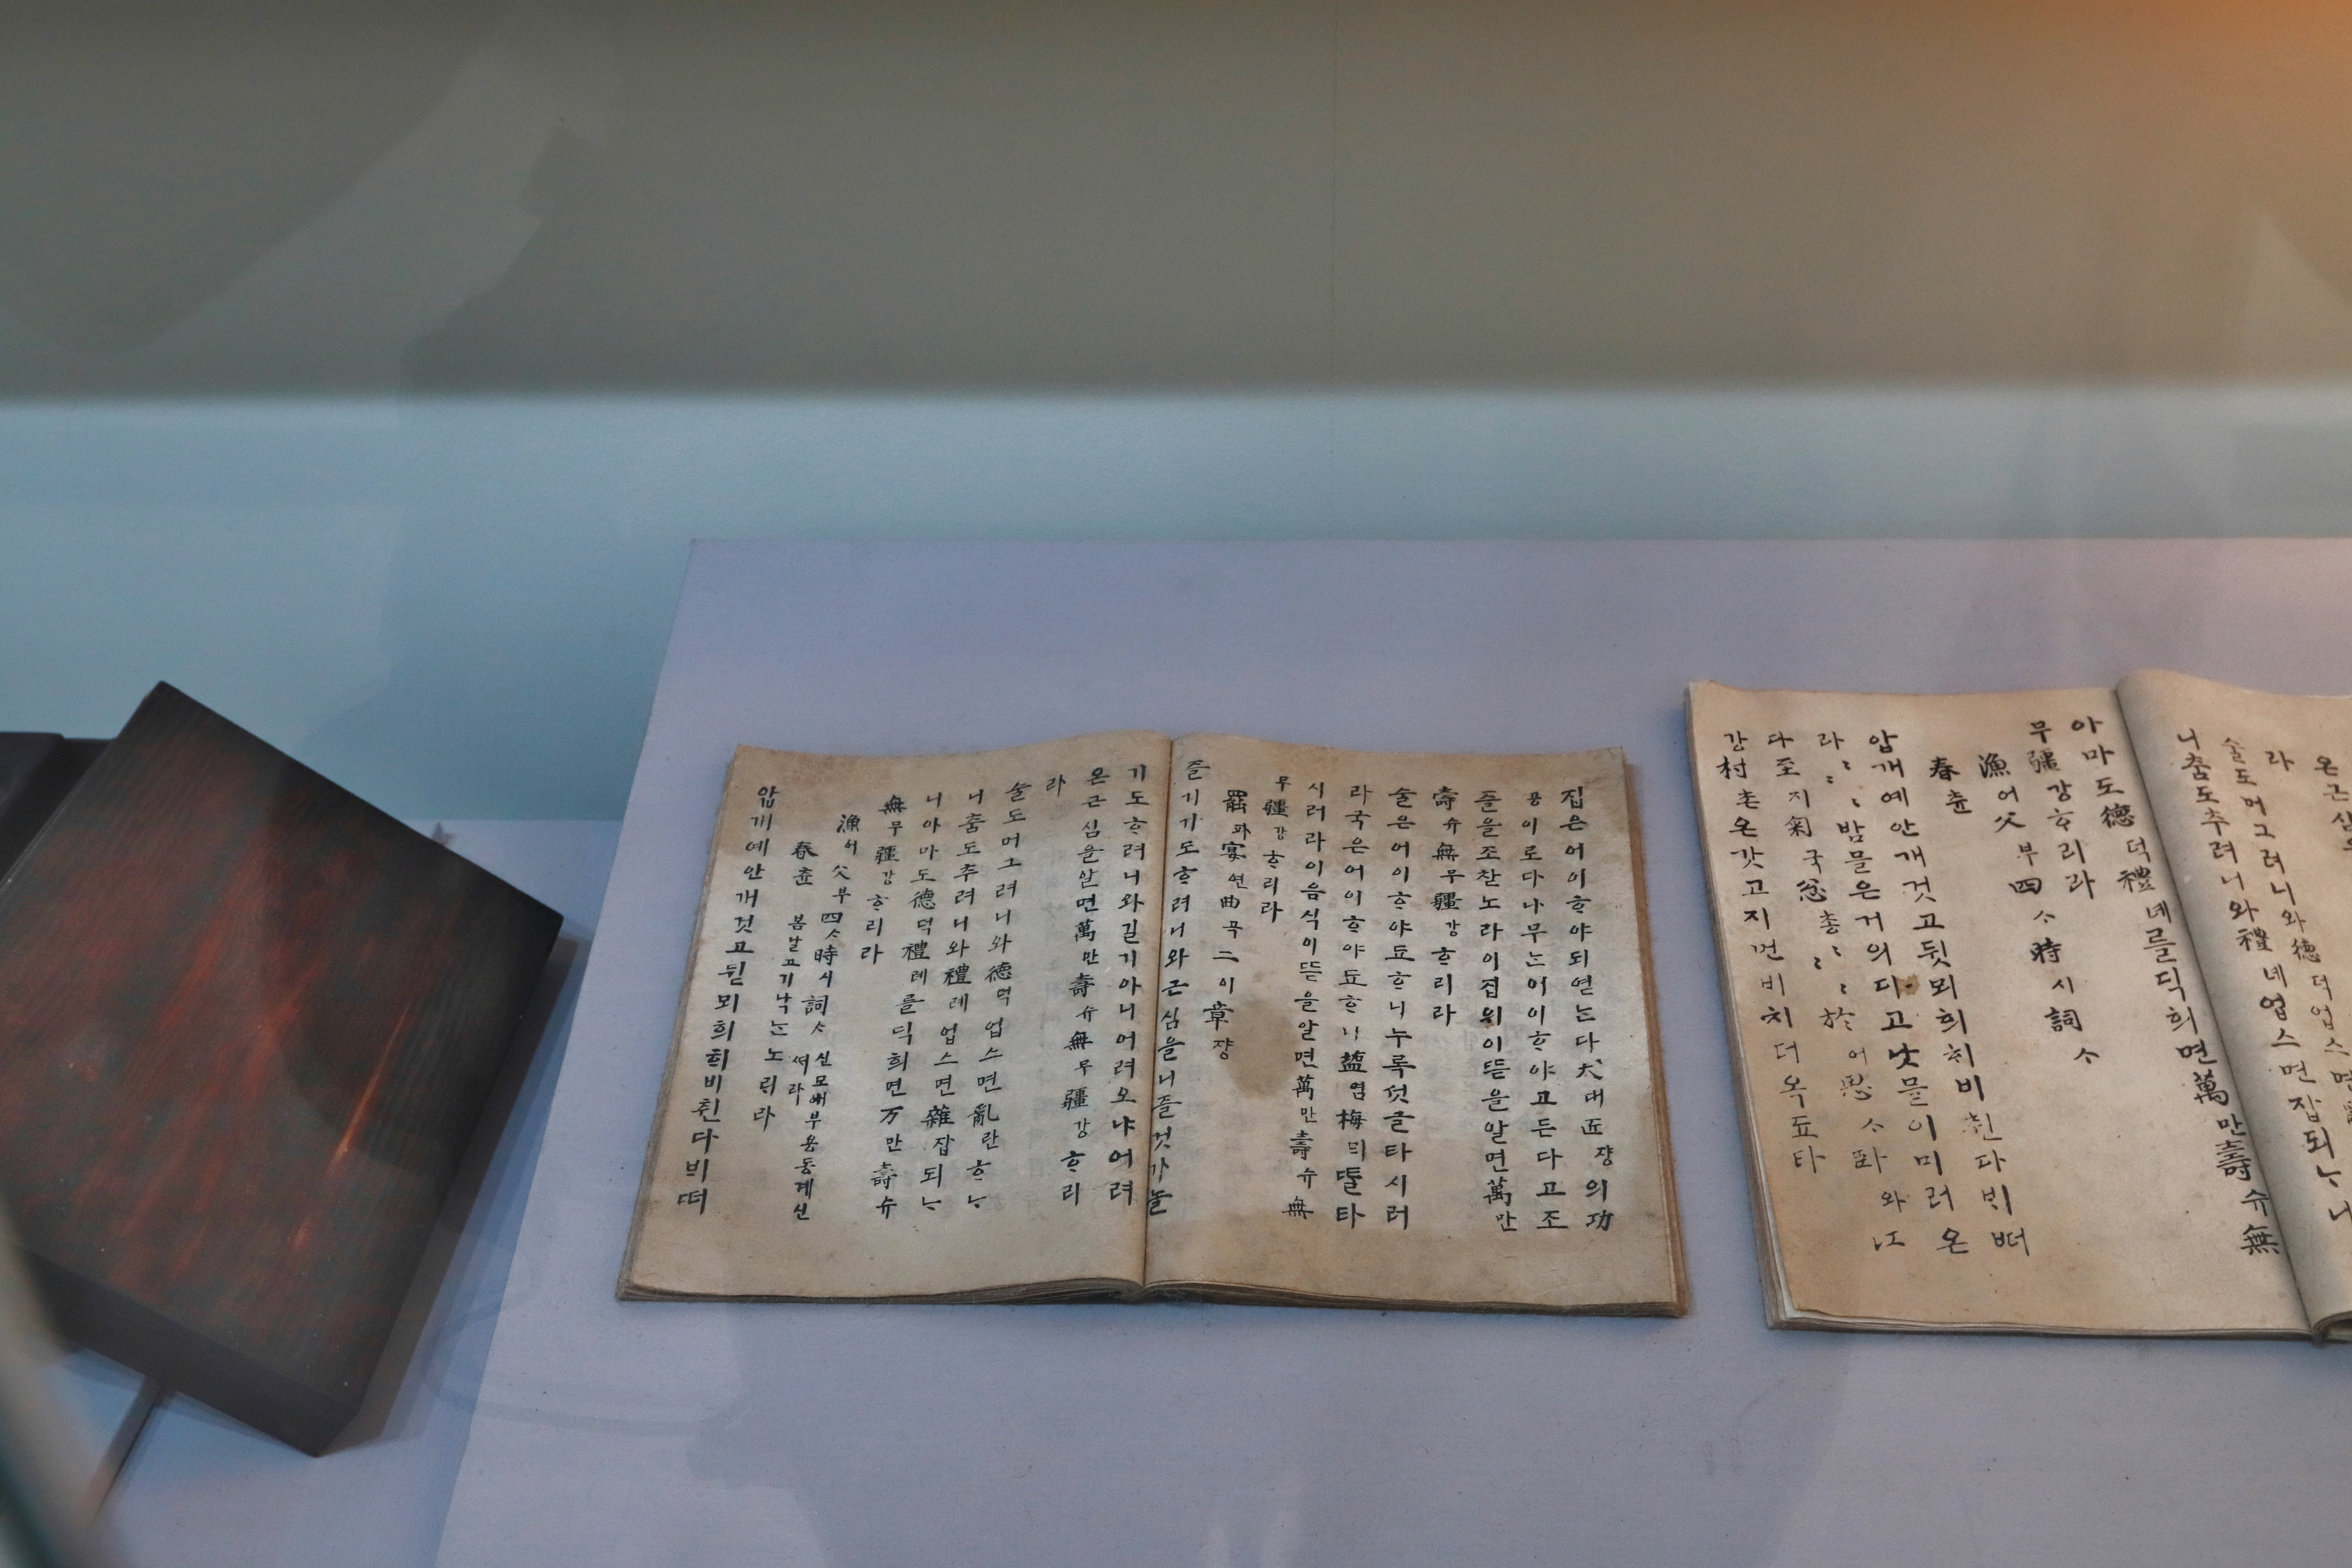 집은어이ᄒᆞ야되엳ᄂᆞᆫ다大대匠쟝의功
공이로다나무ᄂᆞᆫ어이ᄒᆞ야고든다고조
즐을조찬노라이집위이ᄯᅳᆮ을알면萬만
壽슈無무疆강ᄒᆞ리라
술은어이ᄒᆞ야됴ᄒᆞ니누룩섯글타시러
라국은어이ᄒᆞ야됴ᄒᆞ니鹽염梅ᄆᆡ타
시러라이음식이ᄯᅳᆮ을알면萬만壽슈無
무疆강ᄒᆞ리라
罷파宴연曲곡二이章쟝
즐기기도ᄒᆞ려니와근심을니즐것가놀
기도ᄒᆞ려니와길기아니어려오냐어려
온근심을알면萬만壽슈無무疆강ᄒᆞ리
라
술도머그려니와德덕업스면亂란ᄒᆞᄂᆞ
니춤도추려니와禮례업스면雜잡되ᄂᆞ
니아마도德덕禮례를딕희면万만壽슈
無무疆강ᄒᆞ리라
漁어父부四ᄉᆞ時시詞ᄉᆞ 신묘애부용동계신
春츈 봄날고기낙ᄂᆞᆫ노ᄅᆡ라
압개예안개것고뒫뫼희ᄒᆡ비췬다ᄇᆡᄯᅥ
온근심을
라
술도머그려니와德덕업스면
니춤도추려니와禮녜업스면잡되ᄂᆞ니
아마도德덕禮녜를딕희면萬만壽슈無
무疆강ᄒᆞ리라
漁어父부四ᄉᆞ時시詞ᄉᆞ
春츈
압개예안개것고뒷뫼희ᄒᆡ비췬다ᄇᆡᄠᅥ
라ᄇᆡᄠᅥ라밤믈은거의디고낫믈이미러온
다至지匊국怱총至지匊국怱총於어思ᄉᆞ와江
강村촌온갓고지먼비치더옥됴타